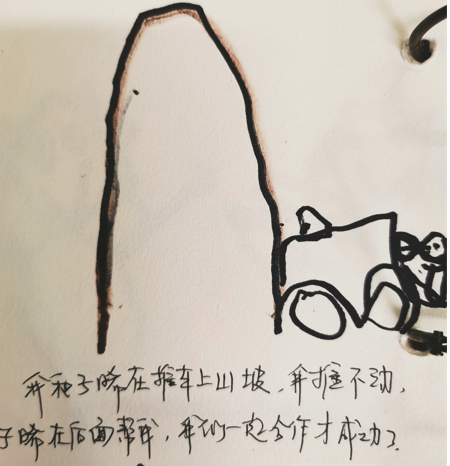 我和子晞在推车上山坡,我推不动,
子晞在后面帮我,我们一起合作才成功了